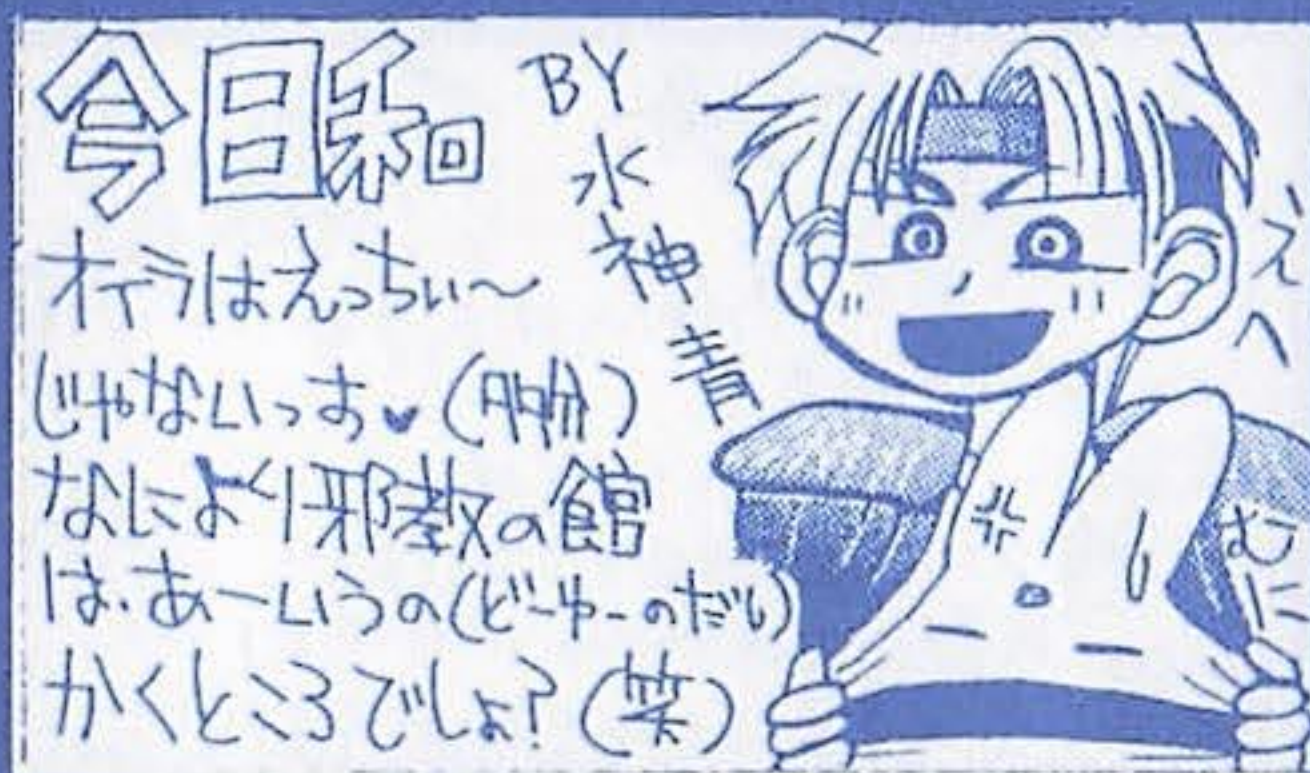 今日和。
BY水神青
オイラはえっちぃ〜
じゃないっす♥(多分)
なにより邪教の館
は、あーいうの(どーゆーのだい)
かくところでしょ?(笑)
えへ
むに